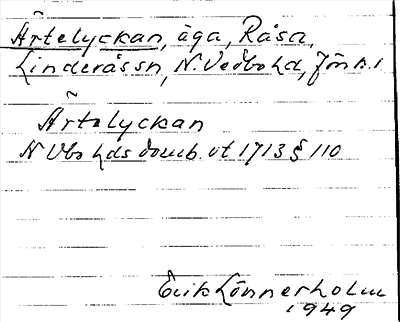 Ärtelyckan, äga, Råsa,
Linderås sn, N. Vedbo hd, Jön. l.
Ärtelyckan
N Vbo hds domb. vt 1713 § 110
Erik Lönnerholm
1949